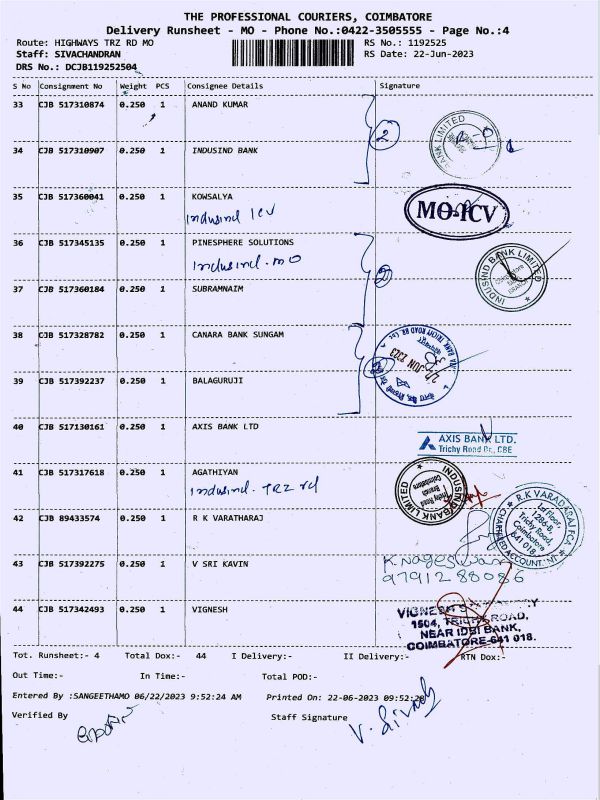 THE PROFESSIONAL COURIERS, COIMBATORE
Delivery Runsheet - MO - Phone No.:0422-3505555 - Page No.:4
Route: HIGHWAYS TRZ RD MO RS No.: 1192525
Staff: SIVACHANDRAN RS Date: 22-Jun-2023
DRS No.: DCJB119252504
S No Consignment No Weight PCS Consignee Details Signature
33 CJB 517310874 0.250 1 ANAND KUMAR
2
BANK LIMITED
34 CJB 517310907 0.250 1 INDUSIND BANK
35 CJB 517360041 0.250 1 KOWSALYA
Indusind ICV
MO-ICV
36 CJB 517345135 0.250 1 PINESPHERE SOLUTIONS
Indusind. MO
INDUSIND BANK LIMITED
37 CJB 517360184 0.250 1 SUBRAMNAIM
2
38 CJB 517328782 0.250 1 CANARA BANK SUNGAM
TRICHY ROAD BR
JUN 2023
39 CJB 517392237 0.250 1 BALAGURUJI
40 CJB 517130161 0.250 1 AXIS BANK LTD
AXIS BANK LTD.
Trichy Road Br., CBE
41 CJB 517317618 0.250 1 AGATHIYAN
Indusind. TRZ rd
INDUSIND BANK LIMITED
Trichy Road
Branch
Coimbatore
42 CJB 89433574 0.250 1 R K VARATHARAJ
R.K VARADARAJ FCA
1st Floor,
1286-B,
Trichy Road,
Coimbatore
641 018.
CHARTERED ACCOUNTANT
43 CJB 517392275 0.250 1 V SRI KAVIN
K. Nageswari
97912 88086
44 CJB 517342493 0.250 1 VIGNESH
1504, TRICHY ROAD,
NEAR IDBI BANK,
COIMBATORE-641 018.
Tot. Runsheet:- 4 Total Dox:- 44 I Delivery:- II Delivery:- RTN Dox:-
Out Time:- In Time:- Total POD:-
Entered By :SANGEETHAMO 06/22/2023 9:52:24 AM Printed On: 22-06-2023 09:52:28
Verified By Staff Signature
V. Sivach